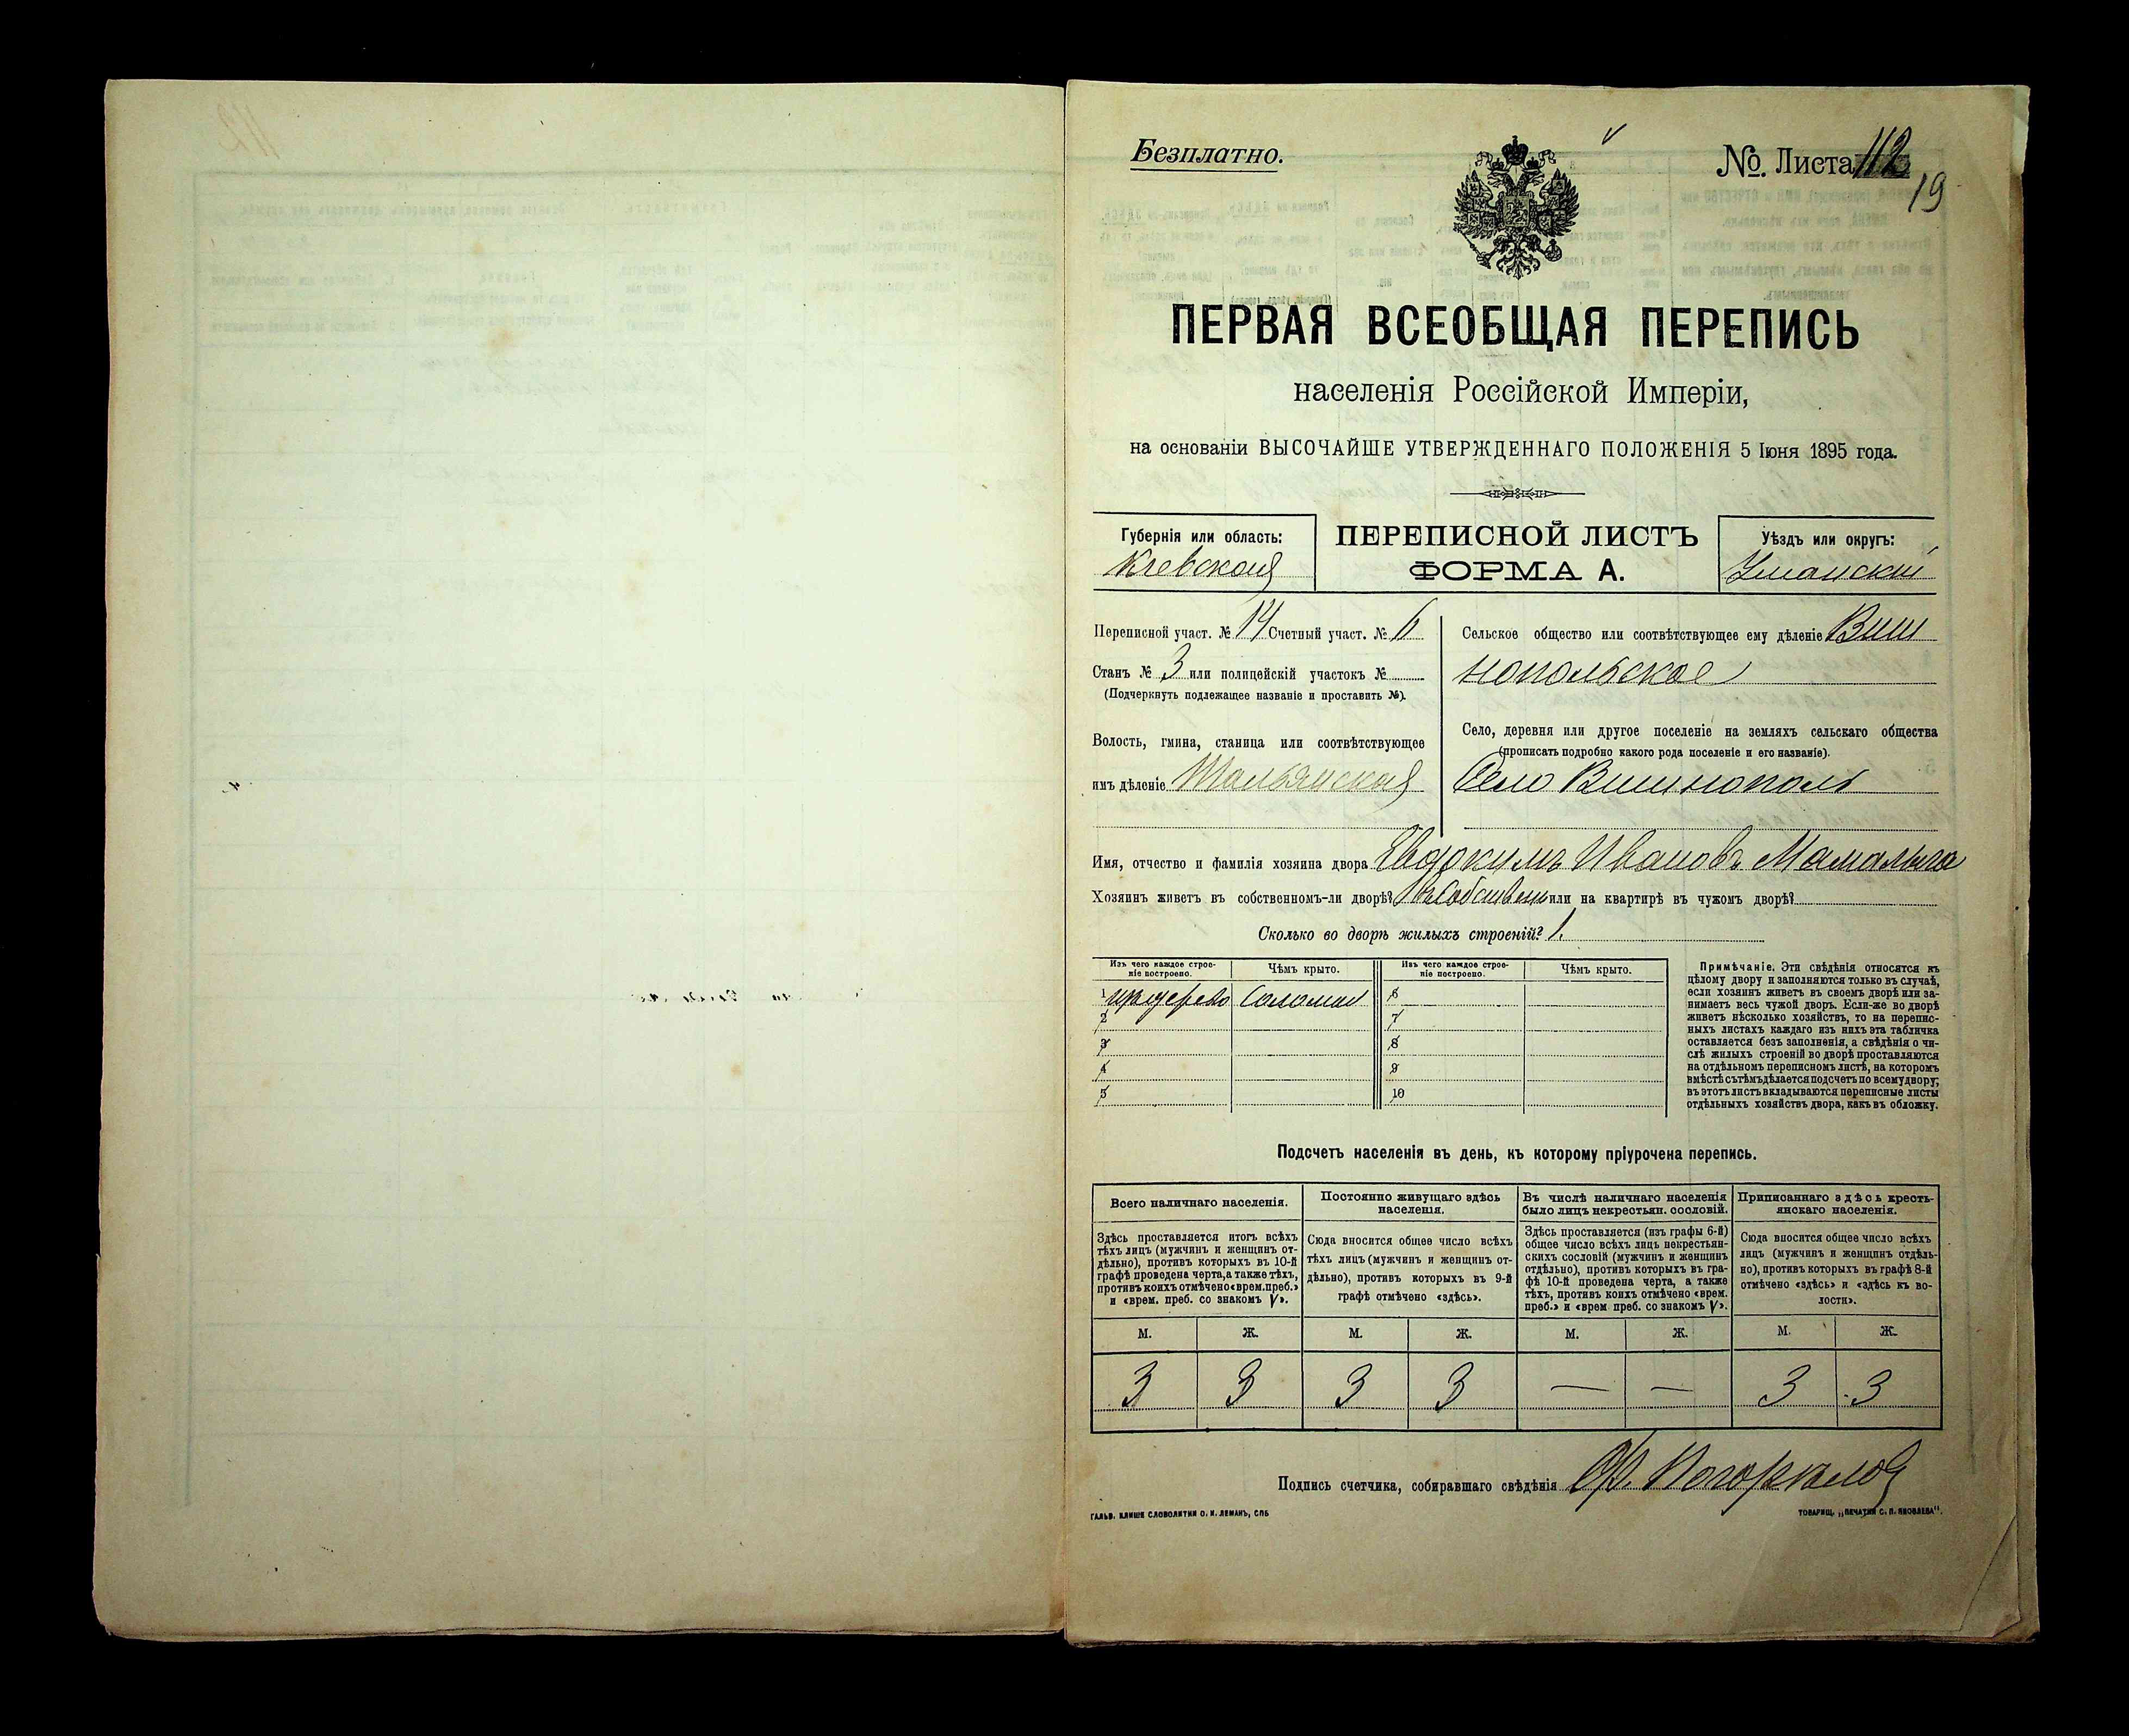 Безплатно.
№ Листа 112
19
ПЕРВАЯ ВСЕОБЩАЯ ПЕРЕПИСЬ
населенія Россійской Имперіи,
на основаніи ВЫСОЧАЙШЕ УТВЕРЖДЕННАГО ПОЛОЖЕНІЯ 5 Іюня 1895 года.
Губернія или область:
Кіевская
ПЕРЕПИСНОЙ ЛИСТЪ
ФОРМА А.
Уѣздъ или округъ:
Уманскій
Переписной участ. № 14 Счетный участ. № 6
Станъ № 3 или полицейскій участокъ №
(Подчеркнуть подлежащее названіе и проставить №).
Волость, гмина, станица или соотвѣтствующее
имъ дѣленіе Тальянская
Сельское общество или соотвѣтствующее ему дѣленіе Виш
нопольское
Село, деревня или другое поселеніе на земляхъ сельскаго общества
(прописать подробно какого рода поселеніе и его названіе).
Село Вишнополь
Имя, отчество и фамилія хозяина двора Евдокимъ Ивановъ Мамалыга
Хозяинъ живетъ въ собственномъ-ли дворѣ? въ собствен или на квартирѣ въ чужомъ дворѣ?
Сколько во дворѣ жилыхъ строеній? 1.
Изъ чего каждое строе-
ніе построено.
Чѣмъ крыто.
Изъ чего каждое строе-
ніе построено.
Чѣмъ крыто.
1 Соломой 6
2 7
3 8
4 9
5 10
Примѣчаніе. Эти свѣдѣнія относятся къ
цѣлому двору и заполняются только въ случаѣ,
если хозяинъ живетъ въ своемъ дворѣ или за-
нимаетъ весь чужой дворъ. Если-же во дворѣ
живетъ нѣсколько хозяйствъ, то на перепис-
ныхъ листахъ каждаго изъ нихъ эта табличка
оставляется безъ заполненія, а свѣдѣнія о чи-
слѣ жилыхъ строеній во дворѣ проставляются
на отдѣльномъ переписномъ листѣ, на которомъ
вмѣстѣ съ тѣмъ дѣлается подсчетъ по всему двору;
въ этотъ листъ вкладываются переписные листы
отдѣльныхъ хозяйствъ двора, какъ въ обложку.
Подсчетъ населенія въ день, къ которому пріурочена перепись.
Всего наличнаго населенія.
Здѣсь проставляется итогъ всѣхъ
тѣхъ лицъ (мужчинъ и женщинъ от-
дѣльно), противъ которыхъ въ 10-й
графѣ проведена черта, а также тѣхъ,
противъ коихъ отмѣчено «врем. преб.»
и «врем. преб. со знакомъ V».
Постоянно живущаго здѣсь
населенія.
Сюда вносится общее число всѣхъ
тѣхъ лицъ (мужчинъ и женщинъ от-
дѣльно), противъ которыхъ въ 9-й
графѣ отмѣчено «здѣсь».
Въ числѣ наличнаго населенія
было лицъ некрестьян. сословій.
Здѣсь проставляется (изъ графы 6-й)
общее число всѣхъ лицъ некрестьян-
скихъ сословій (мужчинъ и женщинъ
отдѣльно), противъ которыхъ въ гра-
фѣ 10-й проведена черта, а также
тѣхъ, противъ коихъ отмѣчено «врем.
преб.» и «врем преб. со знакомъ V».
Приписаннаго здѣсь кресть-
янскаго населенія.
Сюда вносится общее число всѣхъ
лицъ (мужчинъ и женщинъ отдѣль-
но), противъ которыхъ въ графѣ 8-й
отмѣчено «здѣсь» и «здѣсь къ во-
лости».
М. Ж. М. Ж. М. Ж. М. Ж.
3 3 3 3 — — 3 3
Подпись счетчика, собиравшаго свѣдѣнія
ГАЛЬВ. КЛИШЕ СЛОВОЛИТНИ О. И. ЛЕМАНЪ, СПБ
ТОВАРИЩ. „ПЕЧАТНИ С. П. ЯКОВЛЕВА".